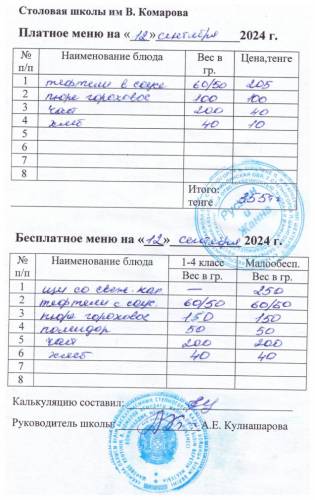 Столовая школы им В. Комарова
Платное меню на «12» сентября 2024 г.
№ п/п Наименование блюда Вес в гр. Цена,тенге
1 тефтели в соусе 60/50 205
2 пюре гороховое 100 100
3 чай 200 40
4 хлеб 40 10
5
6
7
8
Итого: 355тг
тенге
Бесплатное меню на «12» сентября 2024 г.
№ п/п Наименование блюда 1-4 классе Малообесп.
Вес в гр. Вес в гр.
1 щи со свеж. кап — 250
2 тефтели с соус 60/50 60/50
3 пюре гороховое 150 150
4 помидор 50 50
5 чай 200 200
6 хлеб 40 40
7
8
Калькуляцию составил:
Руководитель школы: А.Е. Кулнашарова